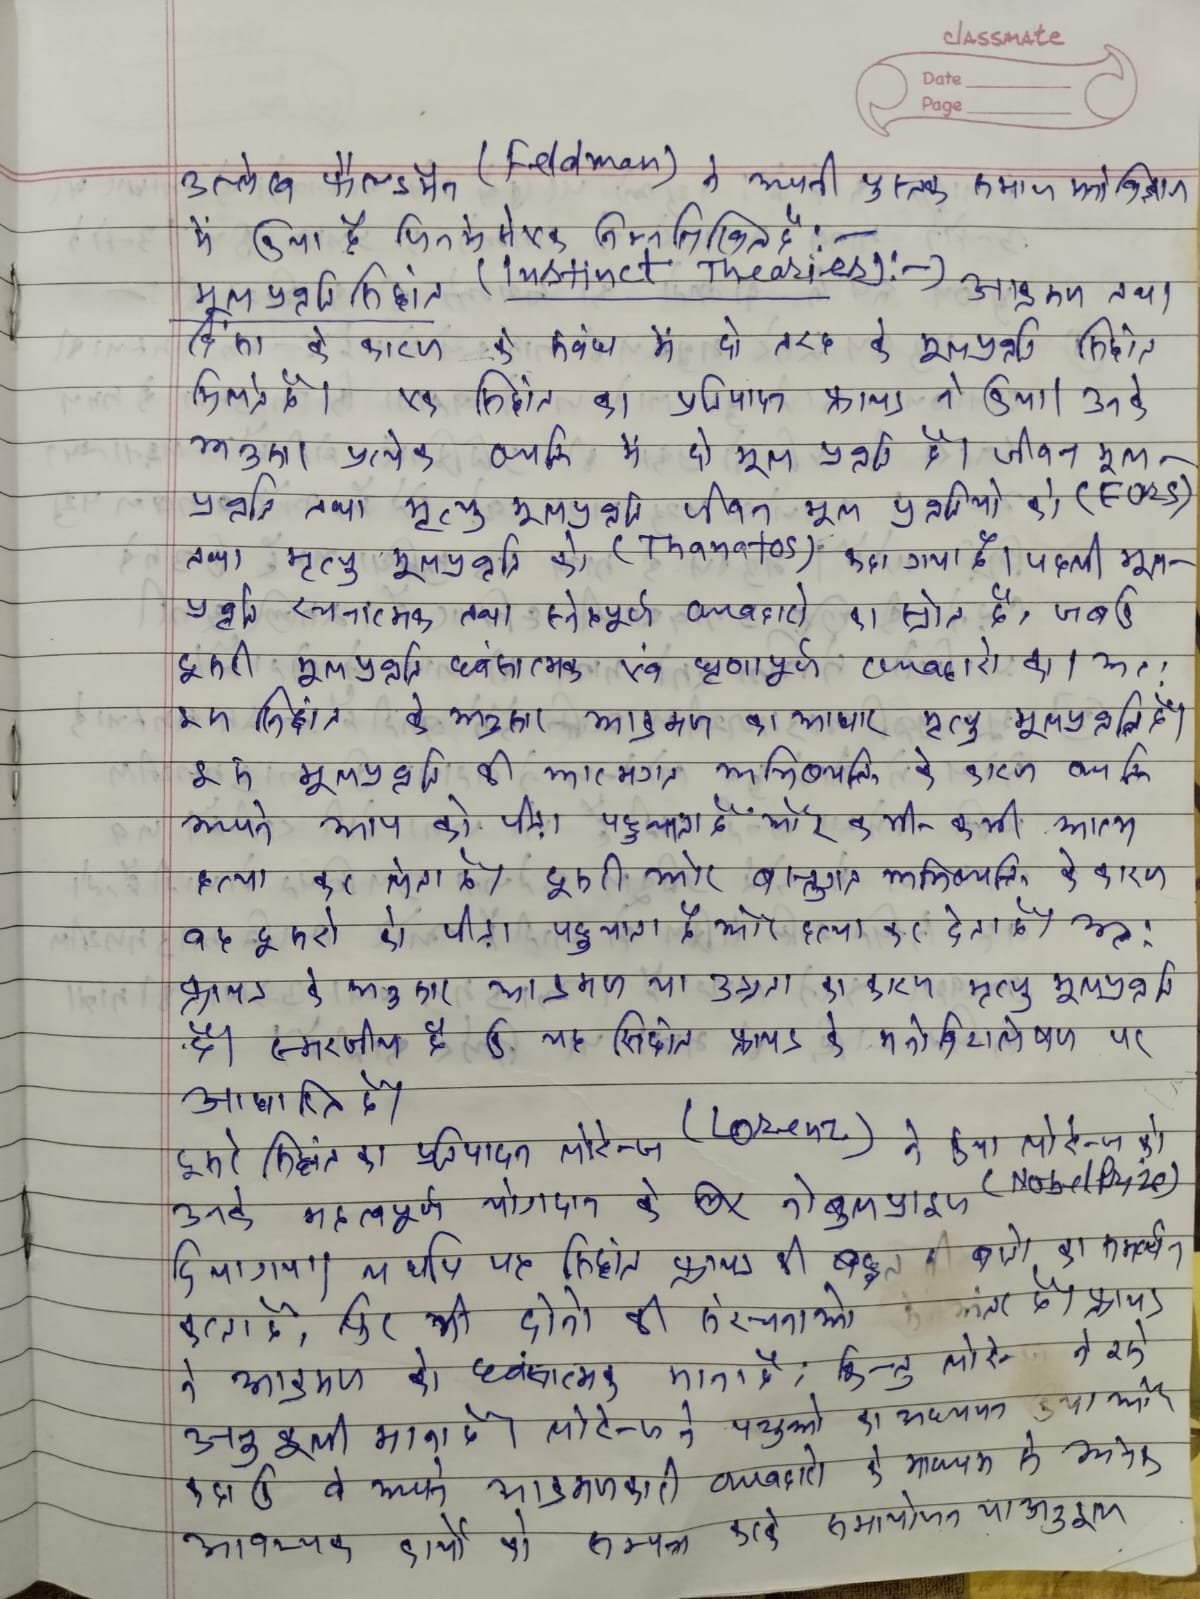 classmate
Date
Page
उल्लेख फैल्डमैन (Feldman) ने अपनी पुस्तक समाज मनोविज्ञान
में किया है जिनमें से एक निम्नलिखित है:-
मूलप्रवृत्ति सिद्धांत (Instinct Theories):-) आक्रमण तथा
हिंसा के कारण के संबंध में दो तरह के मूलप्रवृत्ति सिद्धांत
मिलते हैं। एक सिद्धांत का प्रतिपादन फ्रायड ने किया। उनके
अनुसार प्रत्येक व्यक्ति में दो मूल प्रवृत्ति है। जीवन मूल-
प्रवृत्ति तथा मृत्यु मूलप्रवृत्ति जीवन मूल प्रवृत्तियो को (Eors)
तथा मृत्यु मूलप्रवृत्ति को (Thanatos) कहा गया है। पहली मूल-
प्रवृत्ति रचनात्मक तथा स्नेहपूर्ण व्यवहारो का स्रोत है, जबकि
दूसरी मूलप्रवृत्ति ध्वंसात्मक एवं घृणापूर्ण व्यवहारो का। अत:
इस सिद्धांत के अनुसार आक्रमण का आधार मृत्यु मूलप्रवृत्ति है।
इस मूलप्रवृत्ति की आत्मगत अभिव्यक्ति के कारण व्यक्ति
अपने आप को पीड़ा पहुचाता है और कभी-कभी आत्म
हत्या कर लेता है। दूसरी ओर वास्तुगत अभिव्यक्ति के कारण
वह दूसरो को पीड़ा पहुचाता है और हत्या कर देता है। अत:
फ्रायड के अनुसार आक्रमण या उग्रता का कारण मृत्यु मूलप्रवृत्ति
है। स्मरणीय है कि यह सिद्धांत फ्रायड के मनोविश्लेषण पर
आधारित है।
दूसरे सिद्धांत का प्रतिपादन लोरेन्ज (Lorenz) ने किया लोरेन्ज को
उनके महत्वपूर्ण योगदान के लिए नोबुलप्राइज (Nobel Prize)
दिया गया। यधपि यह सिद्धांत फ्रायड की बहुत सी बातो का समर्थन
करता है, फिर भी दोनो की संरचनाओ में अंतर है। फ्रायड
ने आक्रमण को ध्वंसात्मक माना है; किन्तु लोरेन्ज ने इसे
अनुकूली माना है। लोरेन्ज ने पशुओ का अध्ययन किया और
कहा कि वे अपने आक्रमणकारी व्यवहारो के माध्यम से अनेक
आवश्यक कार्यो को सम्पन्न करके समायोजन या अनुकूल